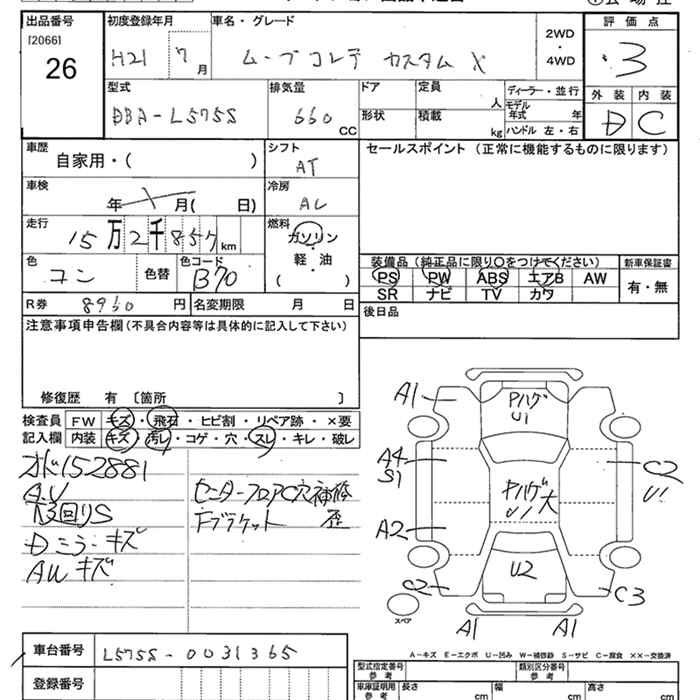 出品番号 初度登録年月 車名・グレード 2WD・4WD 評価点
[2066]
26
H21 7月 ムーブコンテ カスタム X 3
型式 排気量 ドア 定員 人 ディーラー・並行 外装 内装
DBA-L575S 660 CC 形状 積載 kg モデル年式 年 D C
ハンドル 左・右
車歴 シフト セールスポイント (正常に機能するものに限ります)
自家用・( ) AT
車検 冷房
年 月( 日) AC
走行 燃料
15万2千857km ガソリン
軽・油
( )
色 色替 色コード 装備品 (純正品に限り○をつけてください) 新車保証書
コン B70 PS PW ABS エアB AW 有・無
SR ナビ TV カワ
R券 8960円 名変期限 月 日 後日品
注意事項申告欄 (不具合内容等は具体的に記入して下さい)
修復歴 有 [箇所 ]
検査員 FW キズ・飛石・ヒビ割・リペア跡・×要
記入欄 内装 キズ・汚レ・コゲ・穴・スレ・キレ・破レ
152881
A.V センターフロアC穴補修
下廻りS Fブラケット 歪
Dミラーキズ
AWキズ
A1 ヤハゲ U1 A1
A4 S1 ヤハゲ大 U1 C2 U1
A2
C2 U2 C3
スペア
A1 A1
A-キズ E-エクボ U-凹み W-補修跡 S-サビ C-腐食 XX-交換済
車台番号 L575S-0031365
登録番号
型式指定番号 参考 類別区分番号 参考
車庫証明用 参考 長さ cm 幅 cm 高さ cm